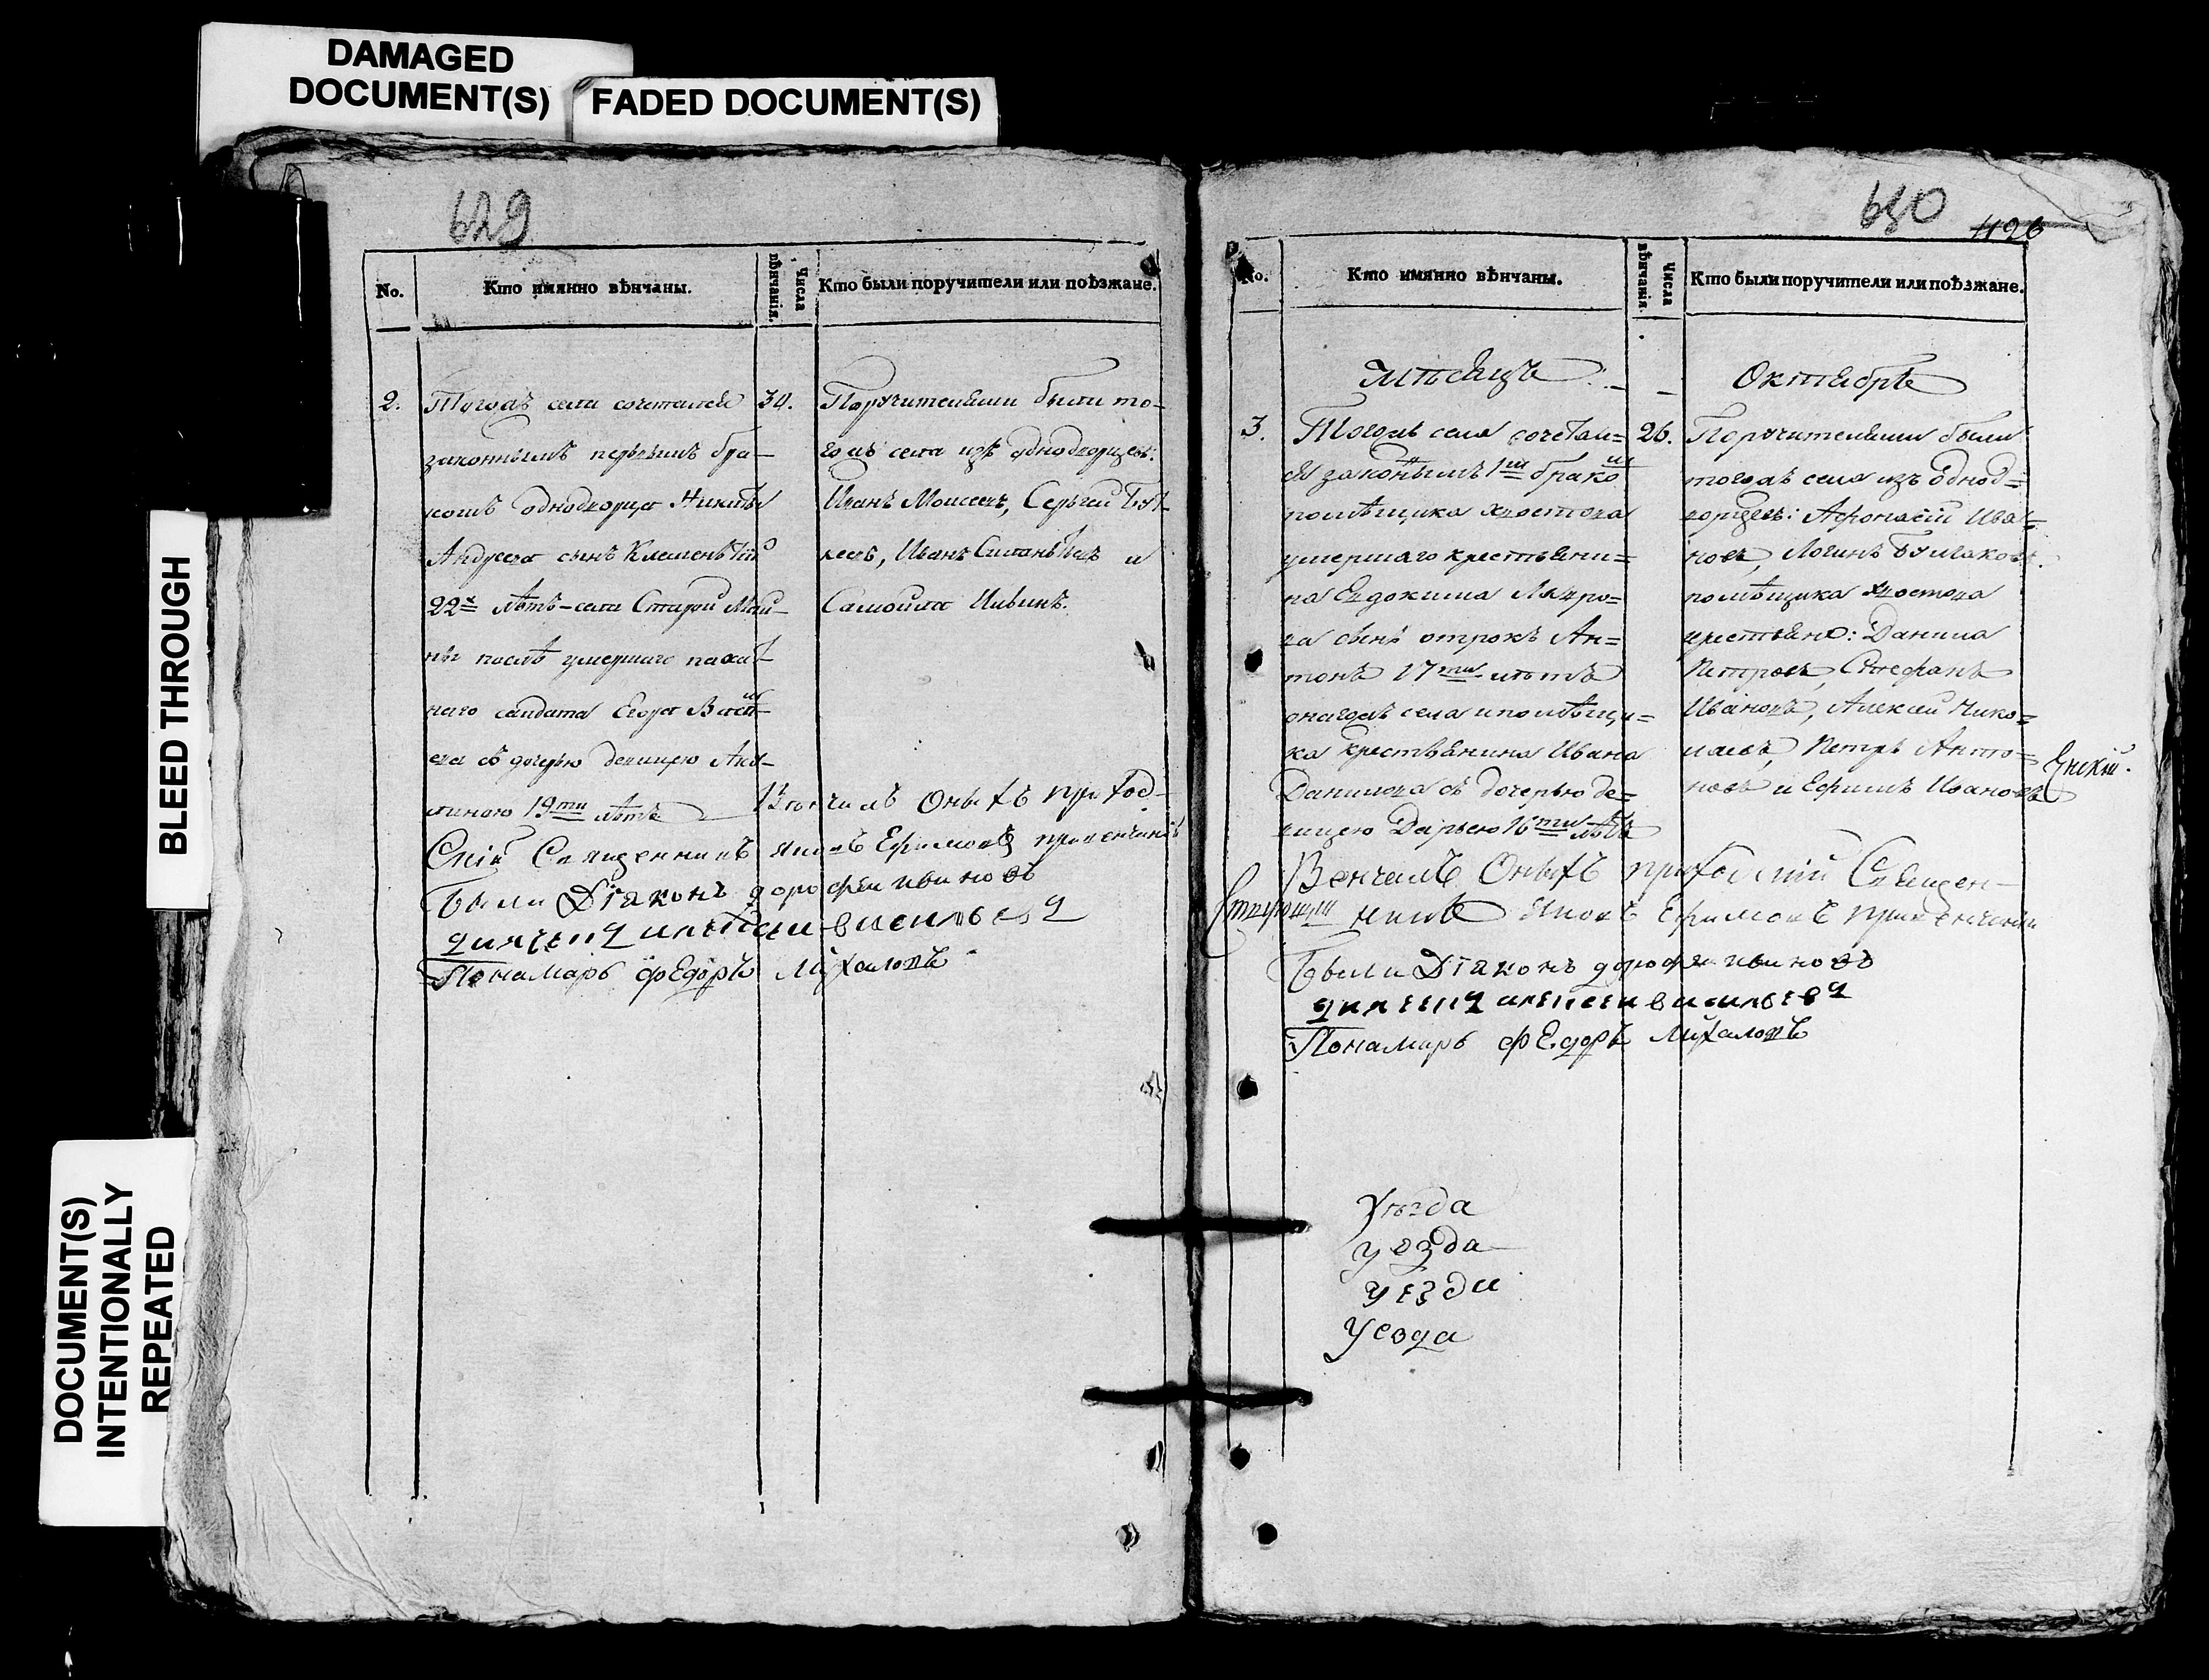 DAMAGED
DOCUMENT(S)
FADED DOCUMENT(S)
BLEED THROUGH
DOCUMENT(S)
INTENTIONALLY
REPEATED
629
No.
Кто имянно вѣнчаны.
Числа
вѣнчанія.
Кто были поручители или поѣзжане.
2.
Тогожъ села сочетался
законнымъ первымъ бра-
комъ однодворца Никиты
Андреева сынъ Клементій
22х лѣтъ – села Старой Май-
ны послѣ умершаго пахат-
наго салдата Егора Васи-
ева съ дочерью девицею Аку-
линою 19ти лѣтъ
30.
Поручителями были то-
гожъ села изъ однодворцевъ:
Иванъ Моисеевъ, Сергей
Иванъ и
Самойла Ильинъ.
Венчалъ Оныхъ приход-
Скій Священникъ Яковъ Ефимовъ при венчаніи
Были Діаконъ дорофеи ивановъ
дьячекъ алексеи васильевъ
Понамарь фЕдоръ Михаловъ
630
426
No.
Кто имянно вѣнчаны.
Числа
вѣнчанія.
Кто были поручители или поѣзжане.
Мѣсецъ
Октебрь
3.
Тогожъ села сочетал=
ся законнымъ 1мъ бракомъ
помѣщика Хвостова
умершаго крестьяни=
на Евдокима Лавро=
ва сынъ отрокъ Ан=
тонъ 17ти лѣтъ
онагожъ села и помѣщи=
ка крестьянина Ивана
Данилова съ дочерью де=
вицею Дарьею 16ти лѣтъ
26.
Поручителями были
тогожъ села изъ однод=
ворцевъ: Афонасій Ива=
новъ, Логинъ Булгаковъ.
помѣщика Хвостова
крестьяне: Данила
Петровъ, Стефанъ
Ивановъ, Алексей Нико=
лаевъ, Петръ Анто=
новъ и Ефимъ Ивановъ
Венчалъ Оныхъ приходскій Священ-
никъ Яковъ Ефимовъ при венчаніи
Были Діаконъ дорофеи ивановъ
дьячекъ алексеи васильевъ
Понамарь фЕдоръ Михаловъ
Уѣзда
уезда
уезда
Уезда